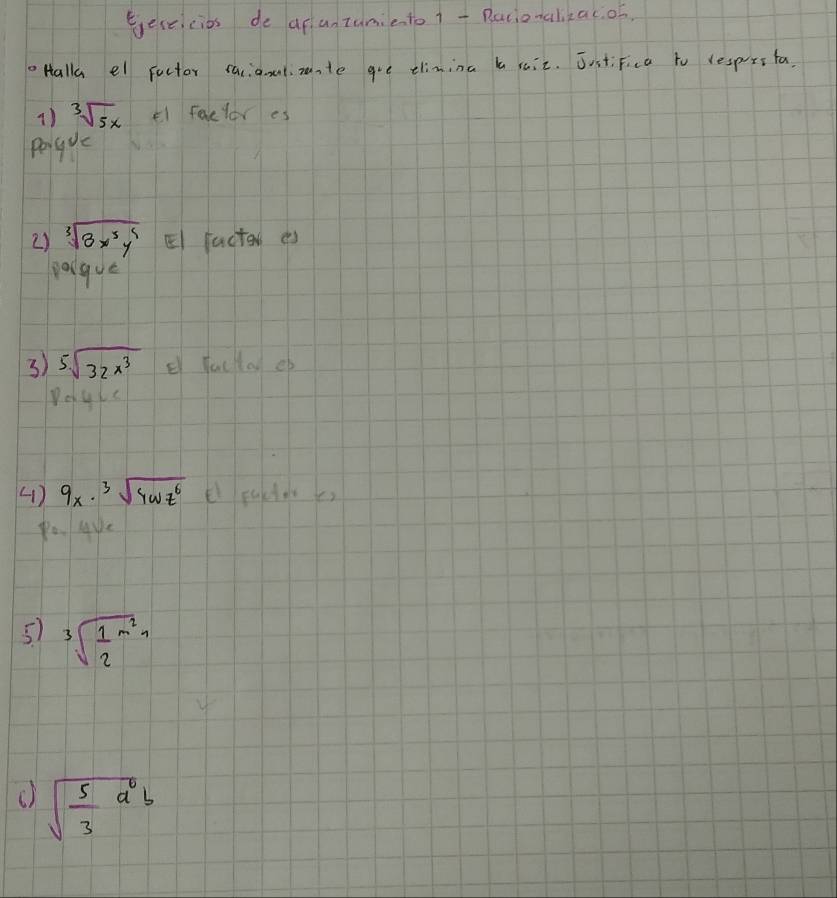 Ejercicios de afianzamiento 1 - Racionalización.
• Halla el factor racionalizante que elimina la raíz. Justifica tu respuesta.
1) ³√5x el factor es
porque
2) ³√8x⁵y⁵ El factor es
porque
3) ⁵√32x³ El factor es
Porque
4) 9x · ³√4wz⁶ El factor es
Porque
5) ³√1/2 m²n
6) √5/3 a⁶b